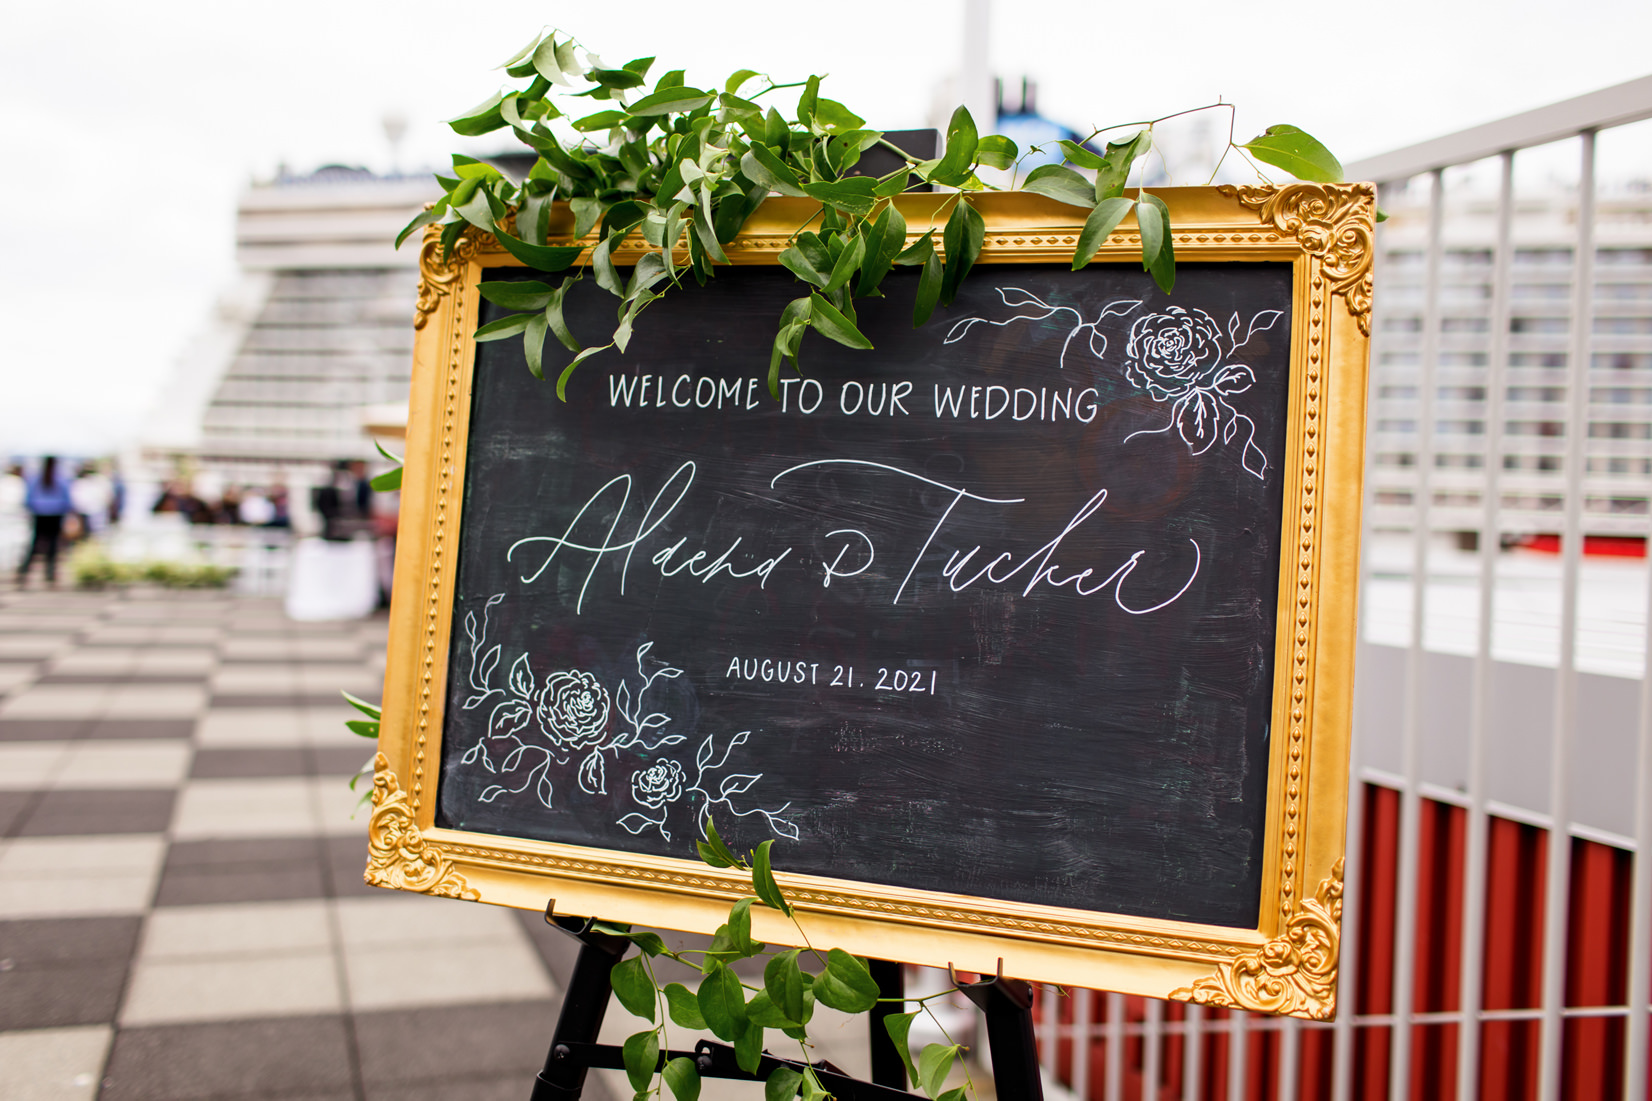 WELCOME TO OUR WEDDING
Alaena & Tucker
AUGUST 21. 2021